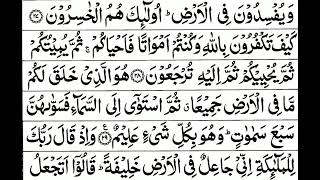 وَ يُفْسِدُوْنَ فِى الْاَرْضِ ؕ اُولٰٓئِكَ هُمُ الْخٰسِرُوْنَ ﴿۲۷﴾
كَيْفَ تَكْفُرُوْنَ بِاللّٰهِ وَكُنْتُمْ اَمْوَاتًا فَاَحْيَاكُمْ ۚ ثُمَّ يُمِيْتُكُمْ
ثُمَّ يُحْيِيْكُمْ ثُمَّ اِلَيْهِ تُرْجَعُوْنَ ﴿۲۸﴾ هُوَ الَّذِىْ خَلَقَ لَكُمْ
مَّا فِى الْاَرْضِ جَمِيْعًا ۗ ثُمَّ اسْتَوٰٓى اِلَى السَّمَآءِ فَسَوّٰىهُنَّ
سَبْعَ سَمٰوٰتٍ ؕ وَهُوَ بِكُلِّ شَىْءٍ عَلِيْمٌ ﴿۲۹﴾ وَاِذْ قَالَ رَبُّكَ
لِلْمَلٰٓئِكَةِ اِنِّىْ جَاعِلٌ فِى الْاَرْضِ خَلِيْفَةً ؕ قَالُوْٓا اَتَجْعَلُ